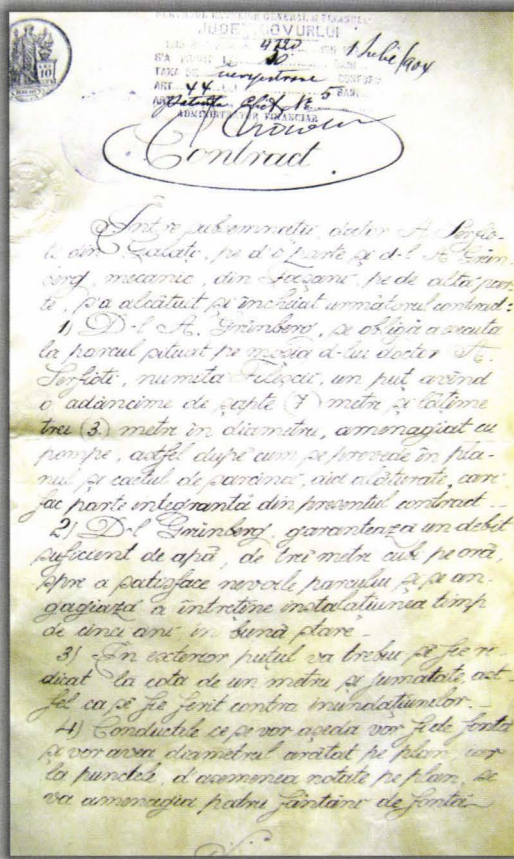 JUDEȚ COVURLUI
4720
1 Iulie 1904
30
TAXA DE inregistrare CONFORM
ART 44 5
ADMINISTRATOR FINANCIAR
Contract
Intre subsemnatii, doctor A. Serfio-
ti din Galați, pe d'o parte și d-l A. Grün-
berg, mecanic, din Focșani, pe de altă par-
te, s'a alcătuit și închiiat următorul contract:
1) D-l A. Grünberg, se obligă a esecuta
la parcul situat pe moșia d-lui doctor A.
Serfioti, numita Filescii, un puț având
o adâncime de șapte (7) metri și lățime
trei (3) metri în diametru, amenagiat cu
pompe, astfel dupe cum se prevede în pla-
nul și caetul de sarcini, aici alăturate, cari
fac parte integrantă din presentul contract.
2) D-l Grünberg, garantează un debit
suficient de apă, de trei metri cubi pe oră,
spre a satisface nevoile parcului și se an-
gagiază a întreține instalațiunea timp
de cinci ani în bună stare.
3) În exterior puțul va trebui să fie re-
dicat la cota de un metru și jumătate, ast-
fel ca să fie ferit contra inundațiunelor.
4) Conductele ce se vor aședa vor fi de fontă
și vor avea diametrul arătat pe plan, iar
la punctele, d'asemenea notate pe plan, se
va amenagia patru fântâni de fontă